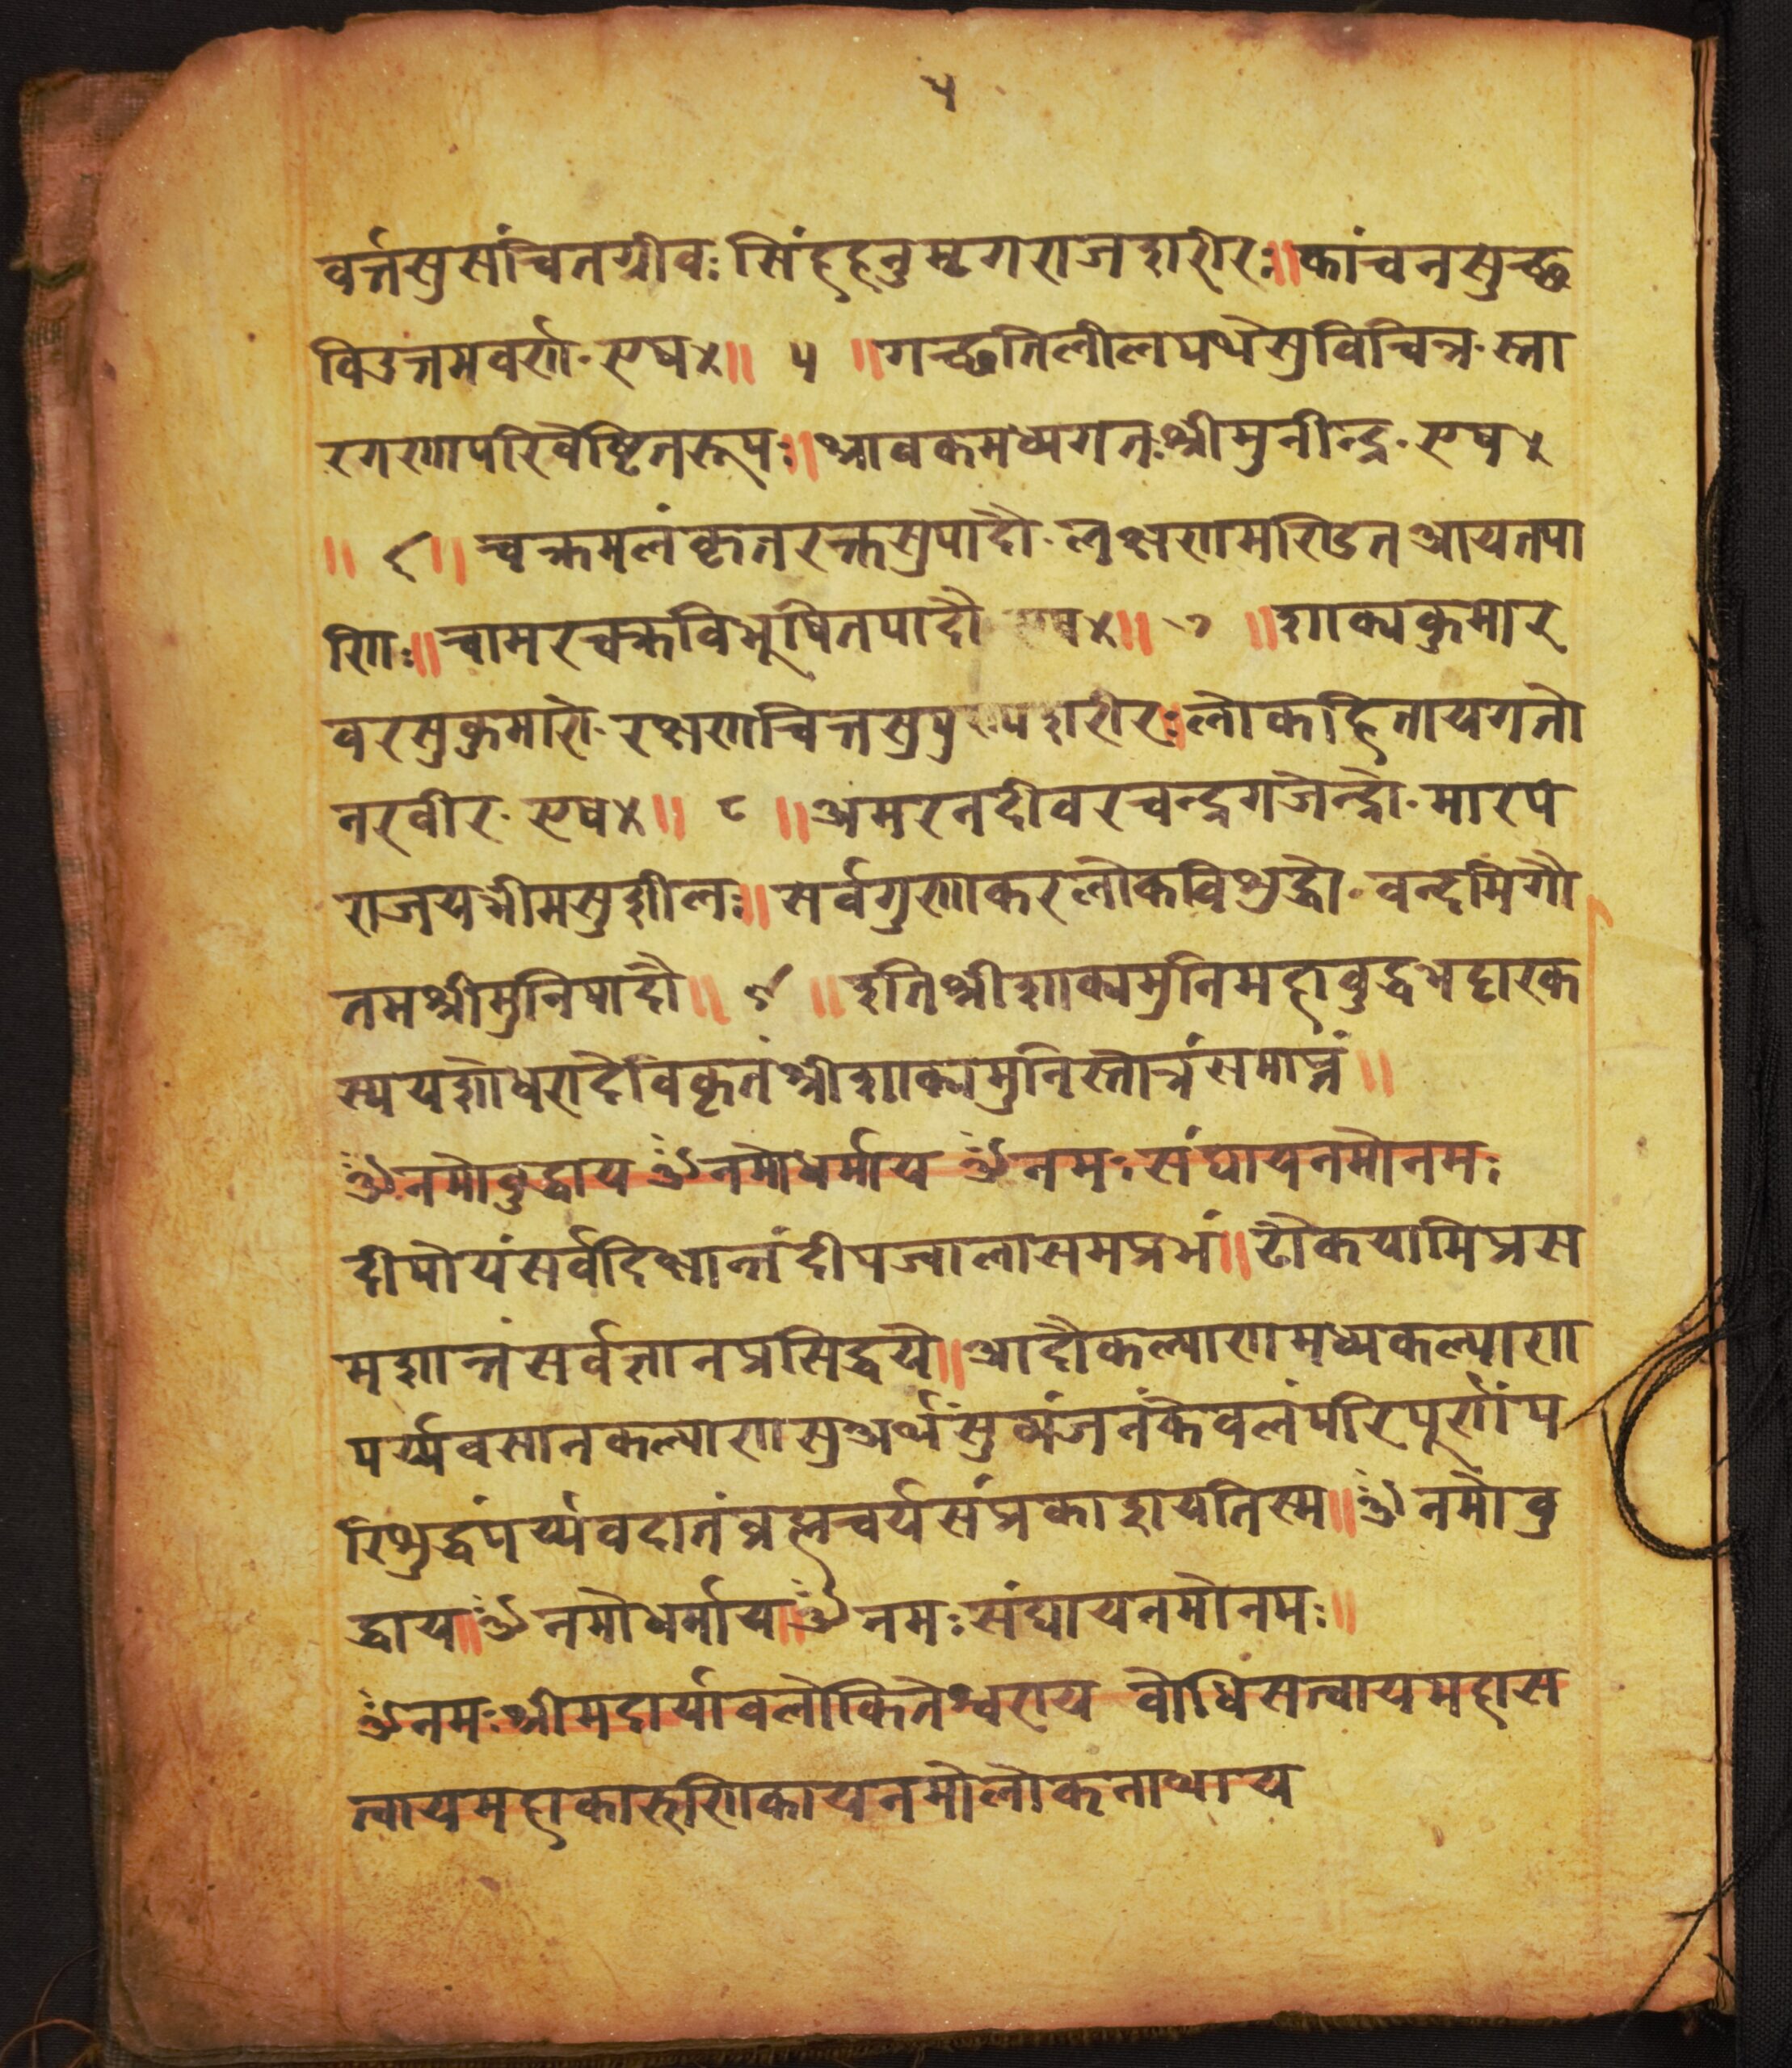 ५
वर्त्तसुसंचितग्रीवः सिंहहनुमृगराजशरीरः॥कांचनसुच्छ
विउत्तमवर्णा॰ एष४॥ ५ ॥गच्छतिलीलपथेसुविचित्र॰स्ता
रगणपरिवेष्टितरूपः॥श्रावकमध्यगतःश्रीमुनीन्द्र॰ एष४
॥ ६॥ चक्रमलंकृतरक्तसुपादौ॰लक्षणमण्डित आयतपा
णिः॥चामरचक्रविभूषितपादौ एष४॥ ७ ॥शाक्यकुमार
वरसुकुमारो॰रक्षणचित्तसुपु शरीरः॥लोकहितायगतो
नरवीर॰ एष४॥ ८ ॥अमरनदीवरचन्द्रगजेन्द्रो॰मारपं
राजयभीमसुशीलः॥सर्वगुणाकरलोकविशुद्धो॰वन्दमिगौ
तमश्रीमुनिपादौ॥ ९ ॥इतिश्रीशाक्यमुनिमहाबुद्धभट्टारक
स्ययशोधरादेविकृतंश्रीशाक्यमुनिस्तोत्रंसमाप्तं॥
ॐनमोबुद्धायॐनमोधर्माय ॐनमःसंघायनमोनमः
दीपोयंसर्वदिक्षान्तंदीपज्वालासमप्रभं॥ढौकयामिप्रस
मशान्तंसर्वज्ञानप्रसिद्धये॥आदौकल्याणमध्यकल्याण
पर्य्यवसानकल्याणसुअर्थंसुव्यंजनंकेवलंपरिपूर्णंप
रिशुद्धंपर्य्यवदातंब्रह्मचर्यसंप्रकाशयतिस्म॥ॐनमोबु
द्धाय॥ॐनमोधर्माय॥ॐनमःसंघायनमोनमः॥
ॐनमःश्रीमदार्यावलोकितेश्वराय बोधिसत्वायमहास
त्वायमहाकारुणिकायनमोलोकनाथाय